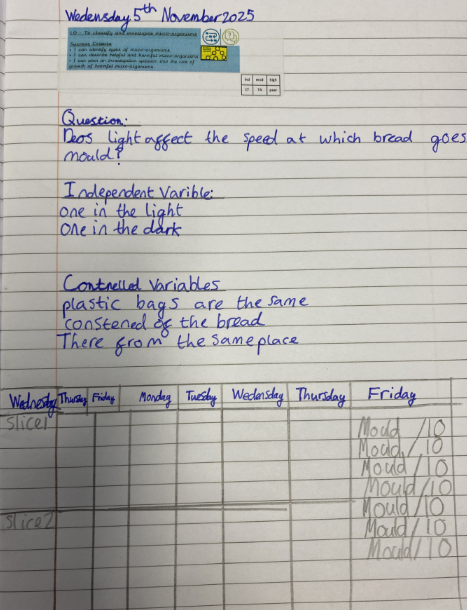 Wedensday 5th November 2025
LO - To identify and investigate micro-organisms
Success Criteria
• I can identify types of micro-organisms
• I can describe helpful and harmful micro-organisms
• I can plan an investigation
growth of harmful micro-organisms
Question:
Deos light affect the speed at which bread goes
mould?
Independent Varible:
one in the light
one in the dark
Contrelled Variables
plastic bags are the same
constened of the bread
There from the same place
Wednesday Thursday Friday Monday Tuesday Wedensday Thursday Friday
Slice1 Mould /10
Mould /10
Mould /10
Mould /10
Mould /10
Slice2 Mould /10
Mould /10